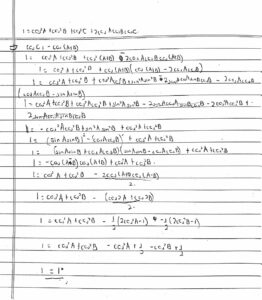 1 = cos²A + cos²B + cos²C + 2cosAcosBcosC
cosC = -cos(A+B)
1 = cos²A + cos²B + cos²(A+B) - 2cosAcosBcos(A+B)
1 = cos²A + cos²B + cos(A+B)(cos(A+B) - 2cosAcosB)
1 = cos²A + cos²B + cos²Acos²B + sin²Asin²B - 2cosAcosB
(cosAcosB - sinAsinB)
1 = cos²A + cos²B + cos²Acos²B + sin²Asin²B - 2cosAcosBsinAsinB - 2cos²Acos²B +
2sinAcosAsinBcosB
1 = -cos²Acos²B + sin²Asin²B + cos²A + cos²B
1 = (sinAsinB)² - (cosAcosB)² + cos²A + cos²B
1 = (sinAsinB - cosAcosB)(sinAsinB + cosAcosB) + cos²A + cos²B
1 = -cos(A+B)cos(A-B) + cos²A + cos²B
1 = cos²A + cos²B - 2cos(A+B)cos(A-B)
2
1 = cos²A + cos²B - (cos2A + cos2B)
2
1 = cos²A + cos²B - ½(2cos²A-1) - ½(2cos²B-1)
1 = cos²A + cos²B - cos²A + ½ - cos²B + ½
1 = 1